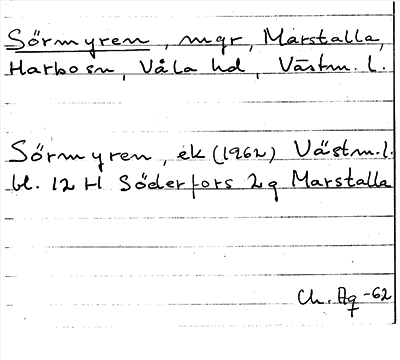 Sörmyren, mgr, Marstalla,
Harbo sn, Våla hd, Västm. l.
Sörmyren, ek (1962) Västm. l.
bl. 12 H Söderfors 2g Marstalla
Ch. Ag -62